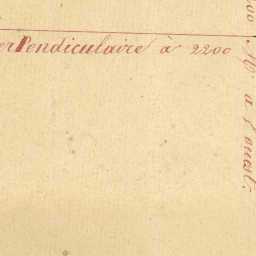 erPendiculaire à 2200
00. M. à l'ouest.